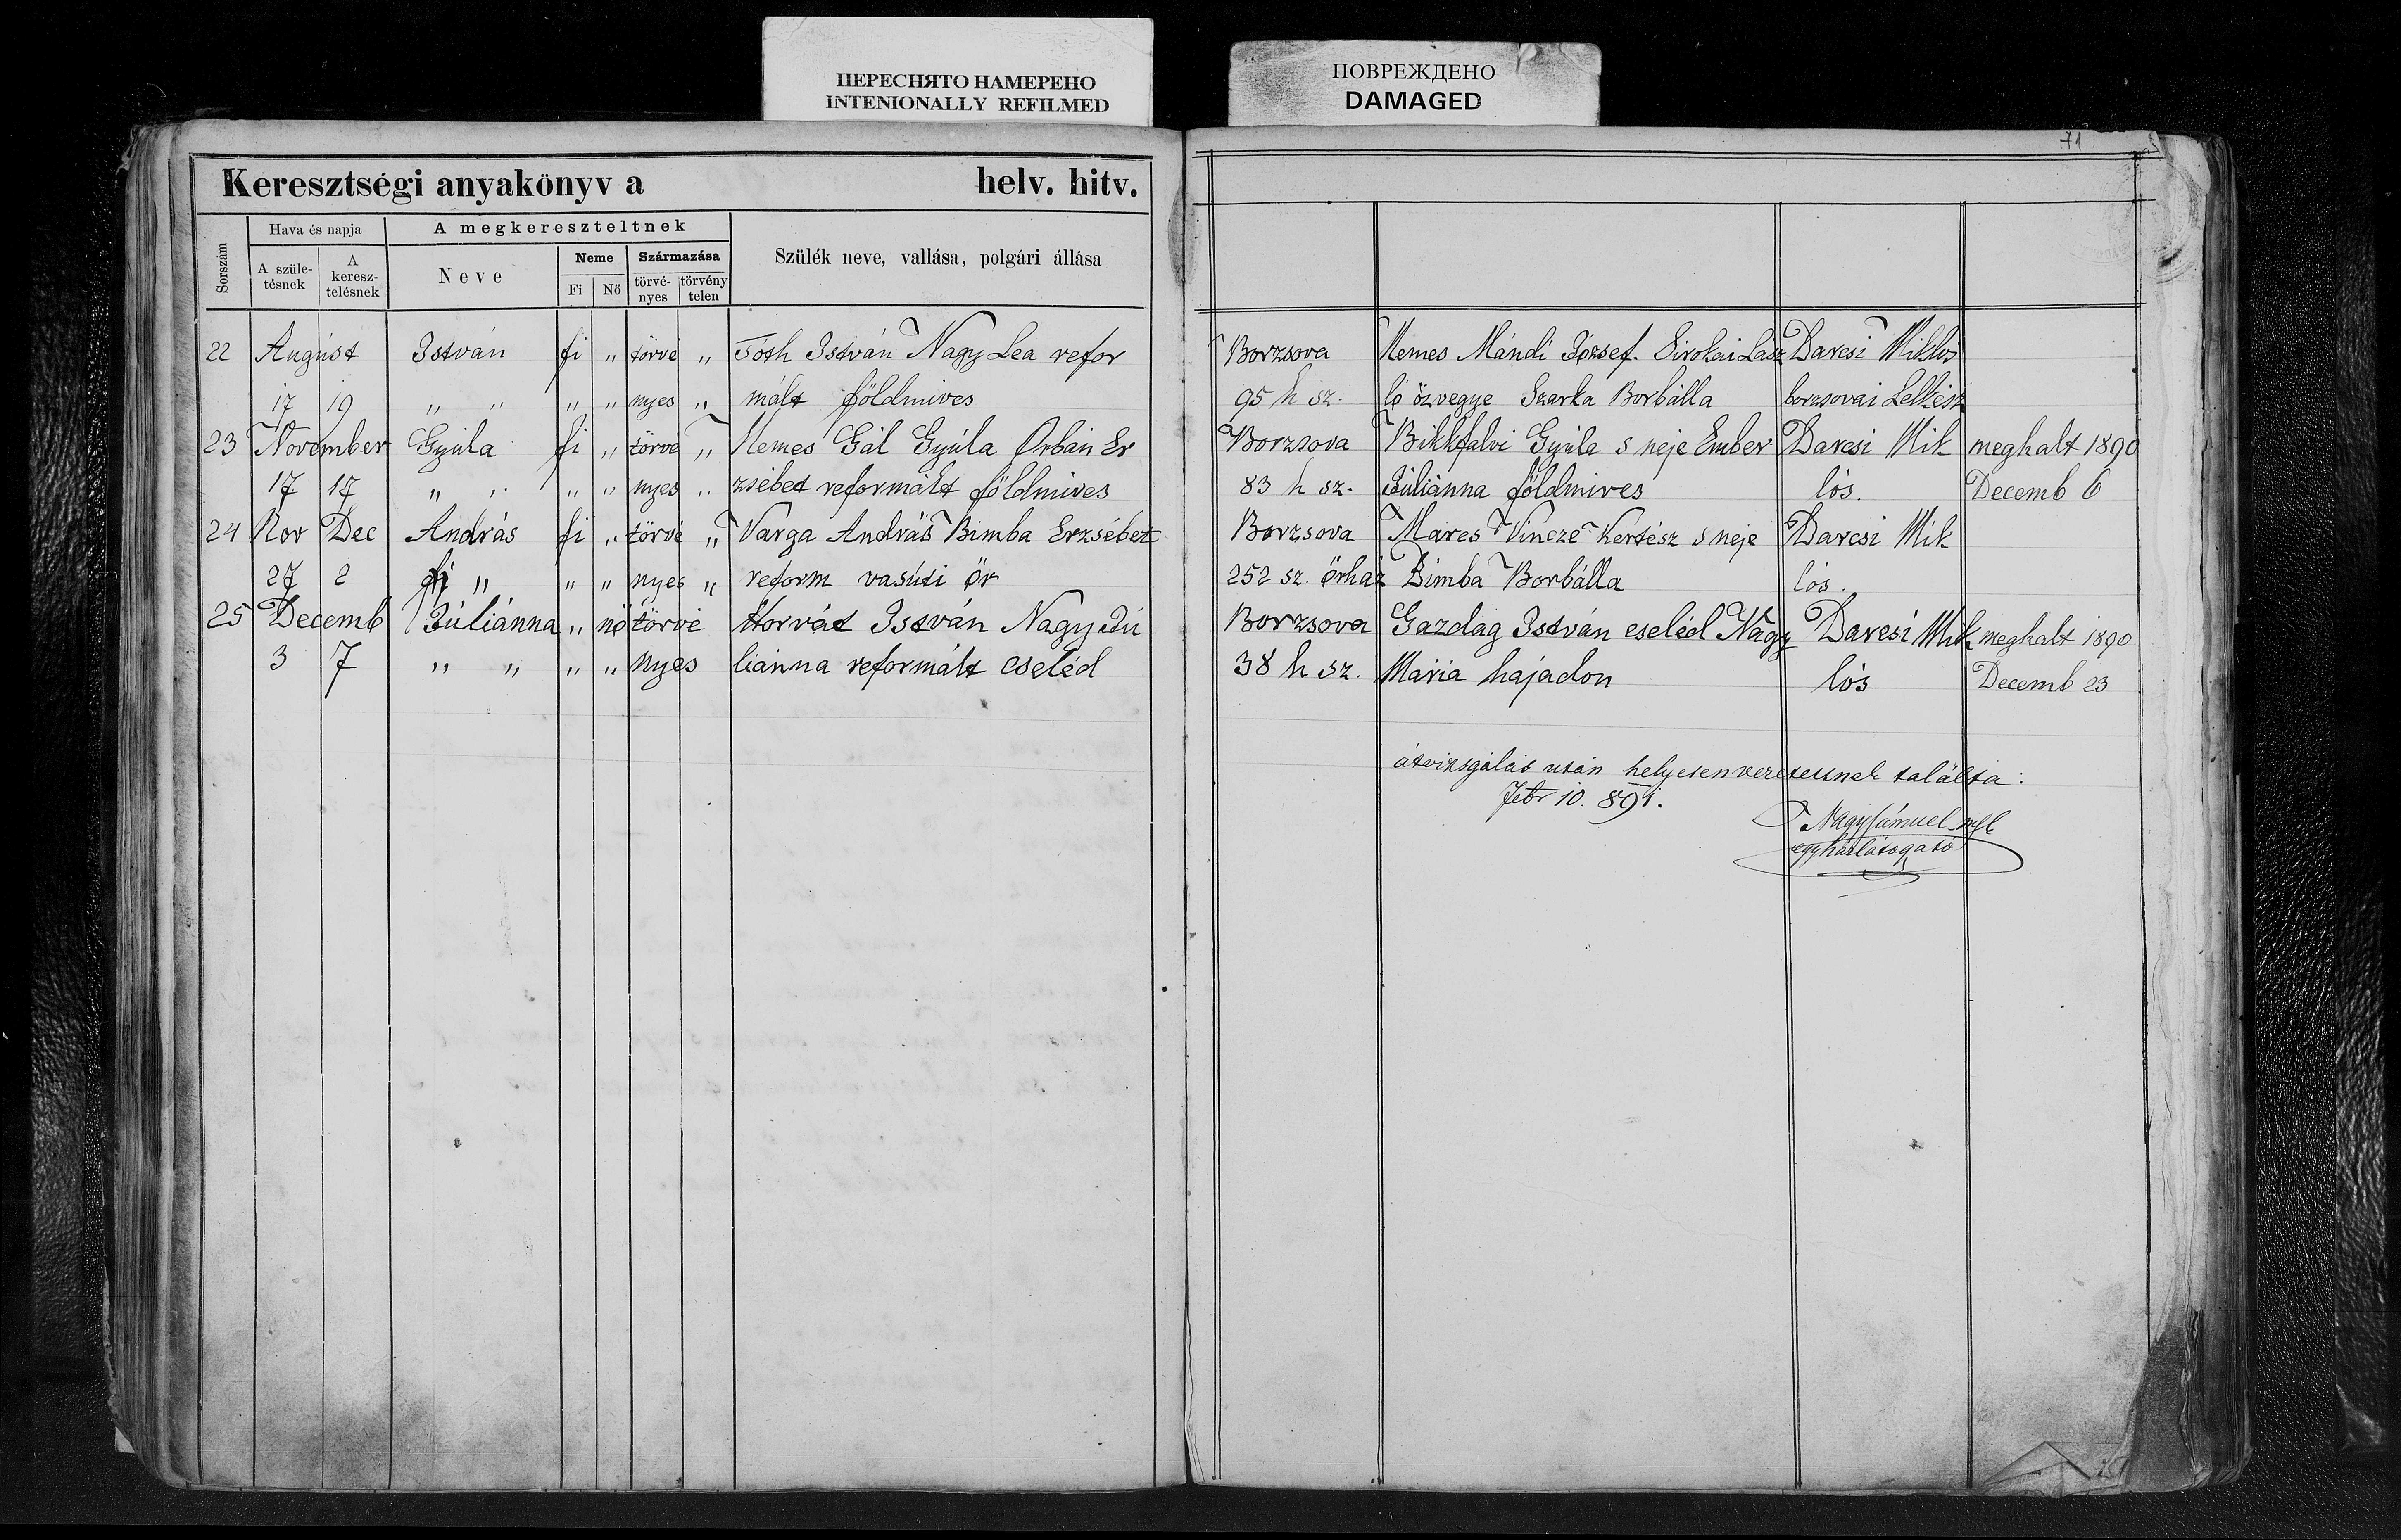 ПЕРЕСНЯТО НАМЕРЕНО
INTENIONALLY REFILMED
ПОВРЕЖДЕНО
DAMAGED
71
Keresztségi anyakönyv a helv. hitv.
Sorszám
Hava és napja
A megkereszteltnek
Szülék neve, vallása, polgári állása
A születésnek
A keresztelésnek
Neve
Neme
Származása
Fi
Nő
törvényes
törvénytelen
22 August István fi " törvé " Tóth István Nagy Lea refor Borzsova Nemes Mándi József. Sirokai Lász Darcsi Miklós
17 19 " " " " nyes " mált földmives 95 h sz. ló özvegye Szarka Borbálla borzsovai Lelkész
23 November Gyúla fi " törvé " Nemes Gál Gyúla Orbán Er Borzsova Bikkfalvi Gyúla s neje Ember Darcsi Mik meghalt 1890
17 17 " " " " nyes " zsébet reformált földmives 83 h sz. Júliánna földmives lós. Decemb 6
24 Nov Dec András fi " törvé " Varga András Bimba Erzsébet Borzsova Mares Vincze Kertész s neje Darcsi Mik
27 2 fi " " " nyes " reform vasúti őr 252 sz. őrház Bimba Borbálla lós.
25 Decemb Júliánna " nő törvé Horvát István Nagy Jú Borzsova Gazdag István cseléd Nagy Darcsi Mik meghalt 1890
3 7 " " " " nyes liánna reformált cseléd 38 h sz. Mária hajadon lós Decemb 23
átvizsgálás után helyesen vezetettnek találta:
Febr 10. 891.
Nagy Sámuel
egyházlátogató